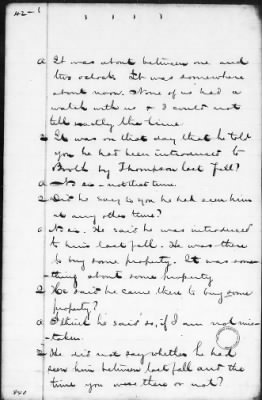 42-
a It was about between one and
two oclock. It was somewhere
about noon. None of us had a
watch with us & I could not
tell exactly the time.
Q It was on that day that he told
you he had been introduced to
Booth by Thompson last fall?
a No sir - not that time.
Q Did he say to you he had seen him
at any other time?
a No sir. He said he was introduced
to him last fall. He was there
to buy some property. It was some-
thing about some property
Q He said he came there to buy some
property?
a I think he said so, if I am not mis-
taken.
Q He did not say whether he had
seen him between last fall and the
time you were there or not?